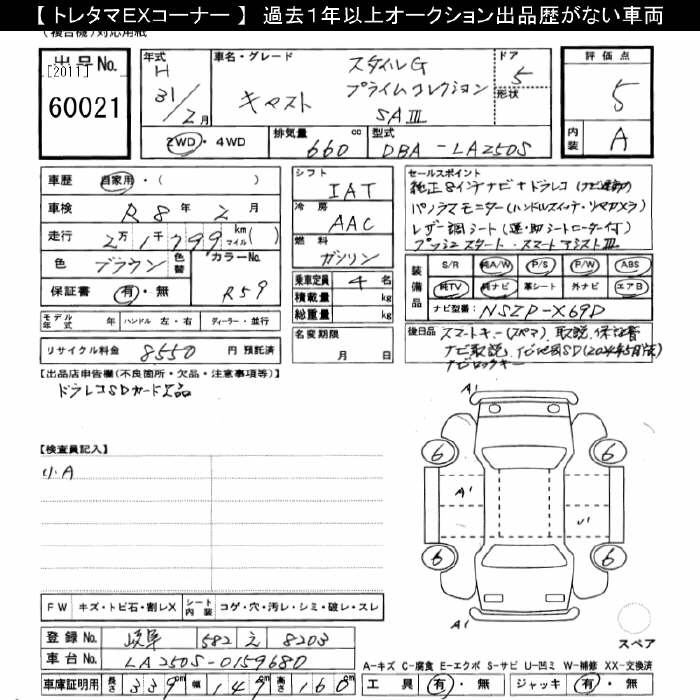 【 トレタマEXコーナー 】 過去1年以上オークション出品歴がない車両
(複合機)対応用紙
出品No.
[2011]
60021
年式
H
31/2月
車名・グレード
キャスト
スタイルG
プライムコレクション
SAIII
ドア
5
形状
評価点
5
内装
A
2WD・4WD
排気量
660 cc
型式
DBA-LA250S
車歴 自家用・( )
車検 R8年2月
走行 2万1千799 km マイル( )
色 ブラウン 色替 カラーNo. R59
保証書 有・無
シフト
IAT
冷房
AAC
燃料
ガソリン
乗車定員 4名
積載量 kg
総重量 kg
名変期限
月 日
セールスポイント
純正8インチナビ+ドラレコ(ナビ連動)
パノラマモニター(ハンドルスイッチ・リヤカメラ)
レザー調シート(運・助シートヒーター付)
プッシュスタート・スマートアシストIII
装備品
S/R 純A/W P/S P/W ABS
純TV 純ナビ 革シート 外ナビ エアB
ナビ型番: NSZP-X69D
モデル年式 年 ハンドル 左・右 ディーラー・並行
リサイクル料金 8550 円 預託済
後日品
スマートキー(スペア)、取説、保証書
ナビ取説、ナビ地図SD(2024年5月版)
ナビロックキー
【出品店申告欄(不良箇所・欠品・注意事項等)】
ドラレコSDカード欠品
【検査員記入】
小A
A1
6 6
A1
U1
6 6
A1
スペア
FW キズ・トビ石・割レX シート内装 コゲ・穴・汚レ・シミ・破レ・スレ
登録No. 岐阜 582 え 8203
車台No. LA250S-0159680
車庫証明用 長さ 339cm 幅 149cm 高さ 160cm
A-キズ C-腐食 E-エクボ S-サビ U-凹ミ W-補修 XX-交換済
工具 有・無 ジャッキ 有・無